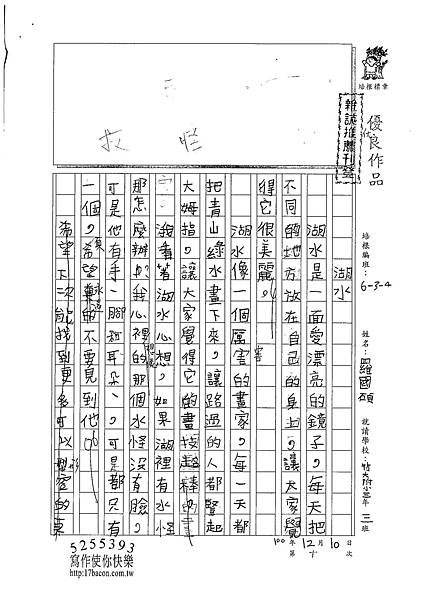 培根標章
優良作品
雜誌推薦刊登
培根編班：6-3-4
姓名：羅國碩
就讀學校：小 三年 班
湖水
湖水是一面愛漂亮的鏡子。每天把
不同的地方放在自己的身上。讓大家覺
得它很美麗。
湖水像一個厲害的畫家。每一天都
把青山綠水畫下來。讓路過的人都豎起
大姆指。讓大家覺得它的畫技超棒的
我看著湖水心想。如果湖裡有水怪
那怎麼辦？我心裡想的那個水怪沒有臉。
可是他有手、腳和耳朵。可是都只有
一個。希望真的不要見到他。
希望下次能找到更多可以形容的東
100年12月10日
第 次
5255393
寫作使你快樂
http://17bacon.com.tw